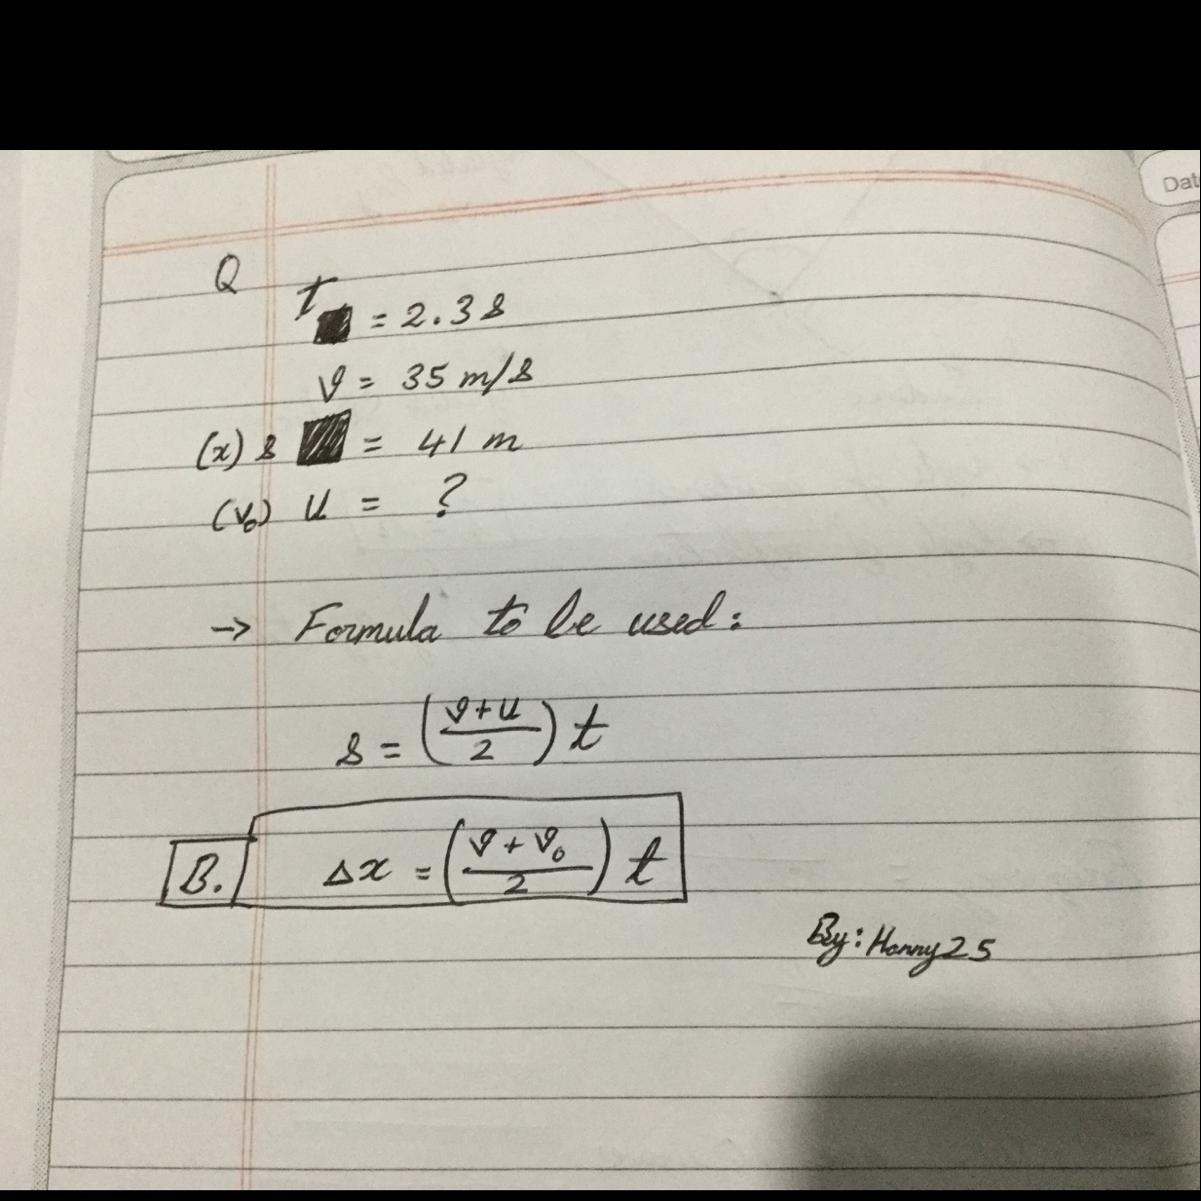 Dat
Q
t = 2.3 s
v = 35 m/s
(x) s = 41 m
(v₀) u = ?
→ Formula to be used:
s = ((v+u)/2) t
B. Δx = ((v + v₀)/2) t
By: Hanny25